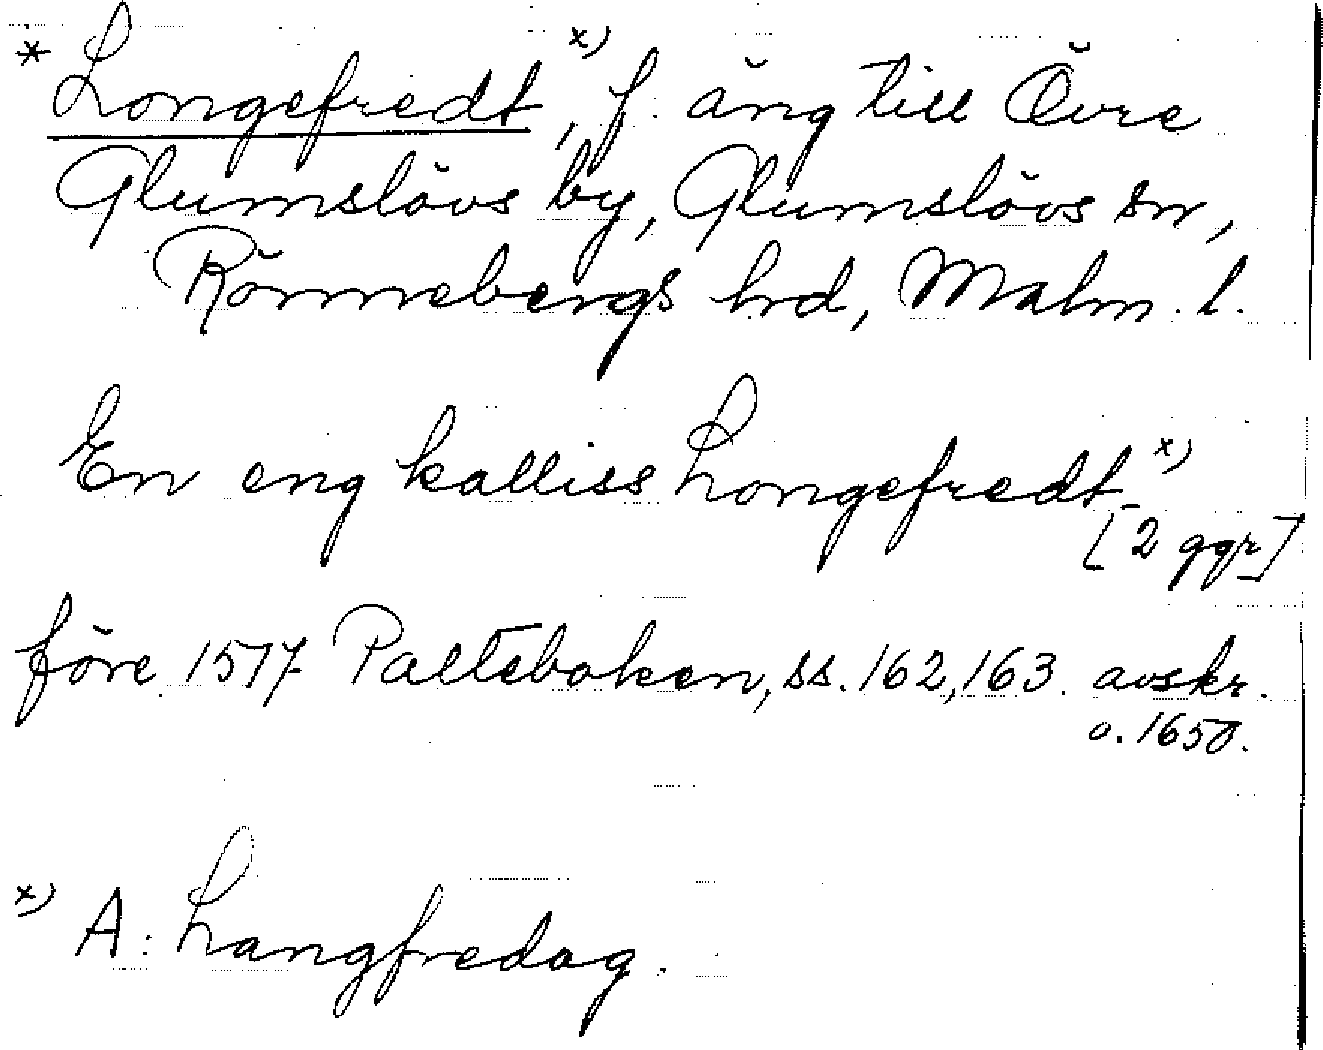 * Longefredt x), f. äng till Övre
Glumslövs by, Glumslövs sn,
Rönnebergs hrd, Malm. l.
En eng kalliss Longefredt x)
[2 ggr]
före 1517 Palteboken, ss. 162, 163. avskr.
o. 1650.
x) A: Langfredag.